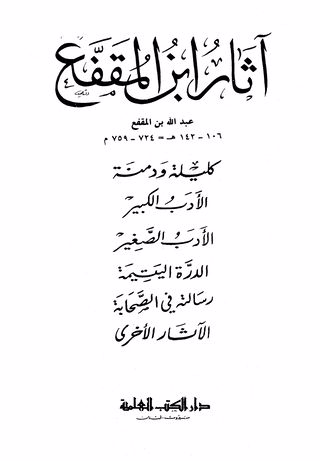 آثار ابن المقفع
عبد الله بن المقفع
١٠٦ - ١٤٢ هـ = ٧٢٤ - ٧٥٩ م
كليلة ودمنة
الأدب الكبير
الأدب الصغير
الدرة اليتيمة
رسالة في الصحابة
الآثار الأخرى
دار الكتب العلمية
بيروت - لبنان